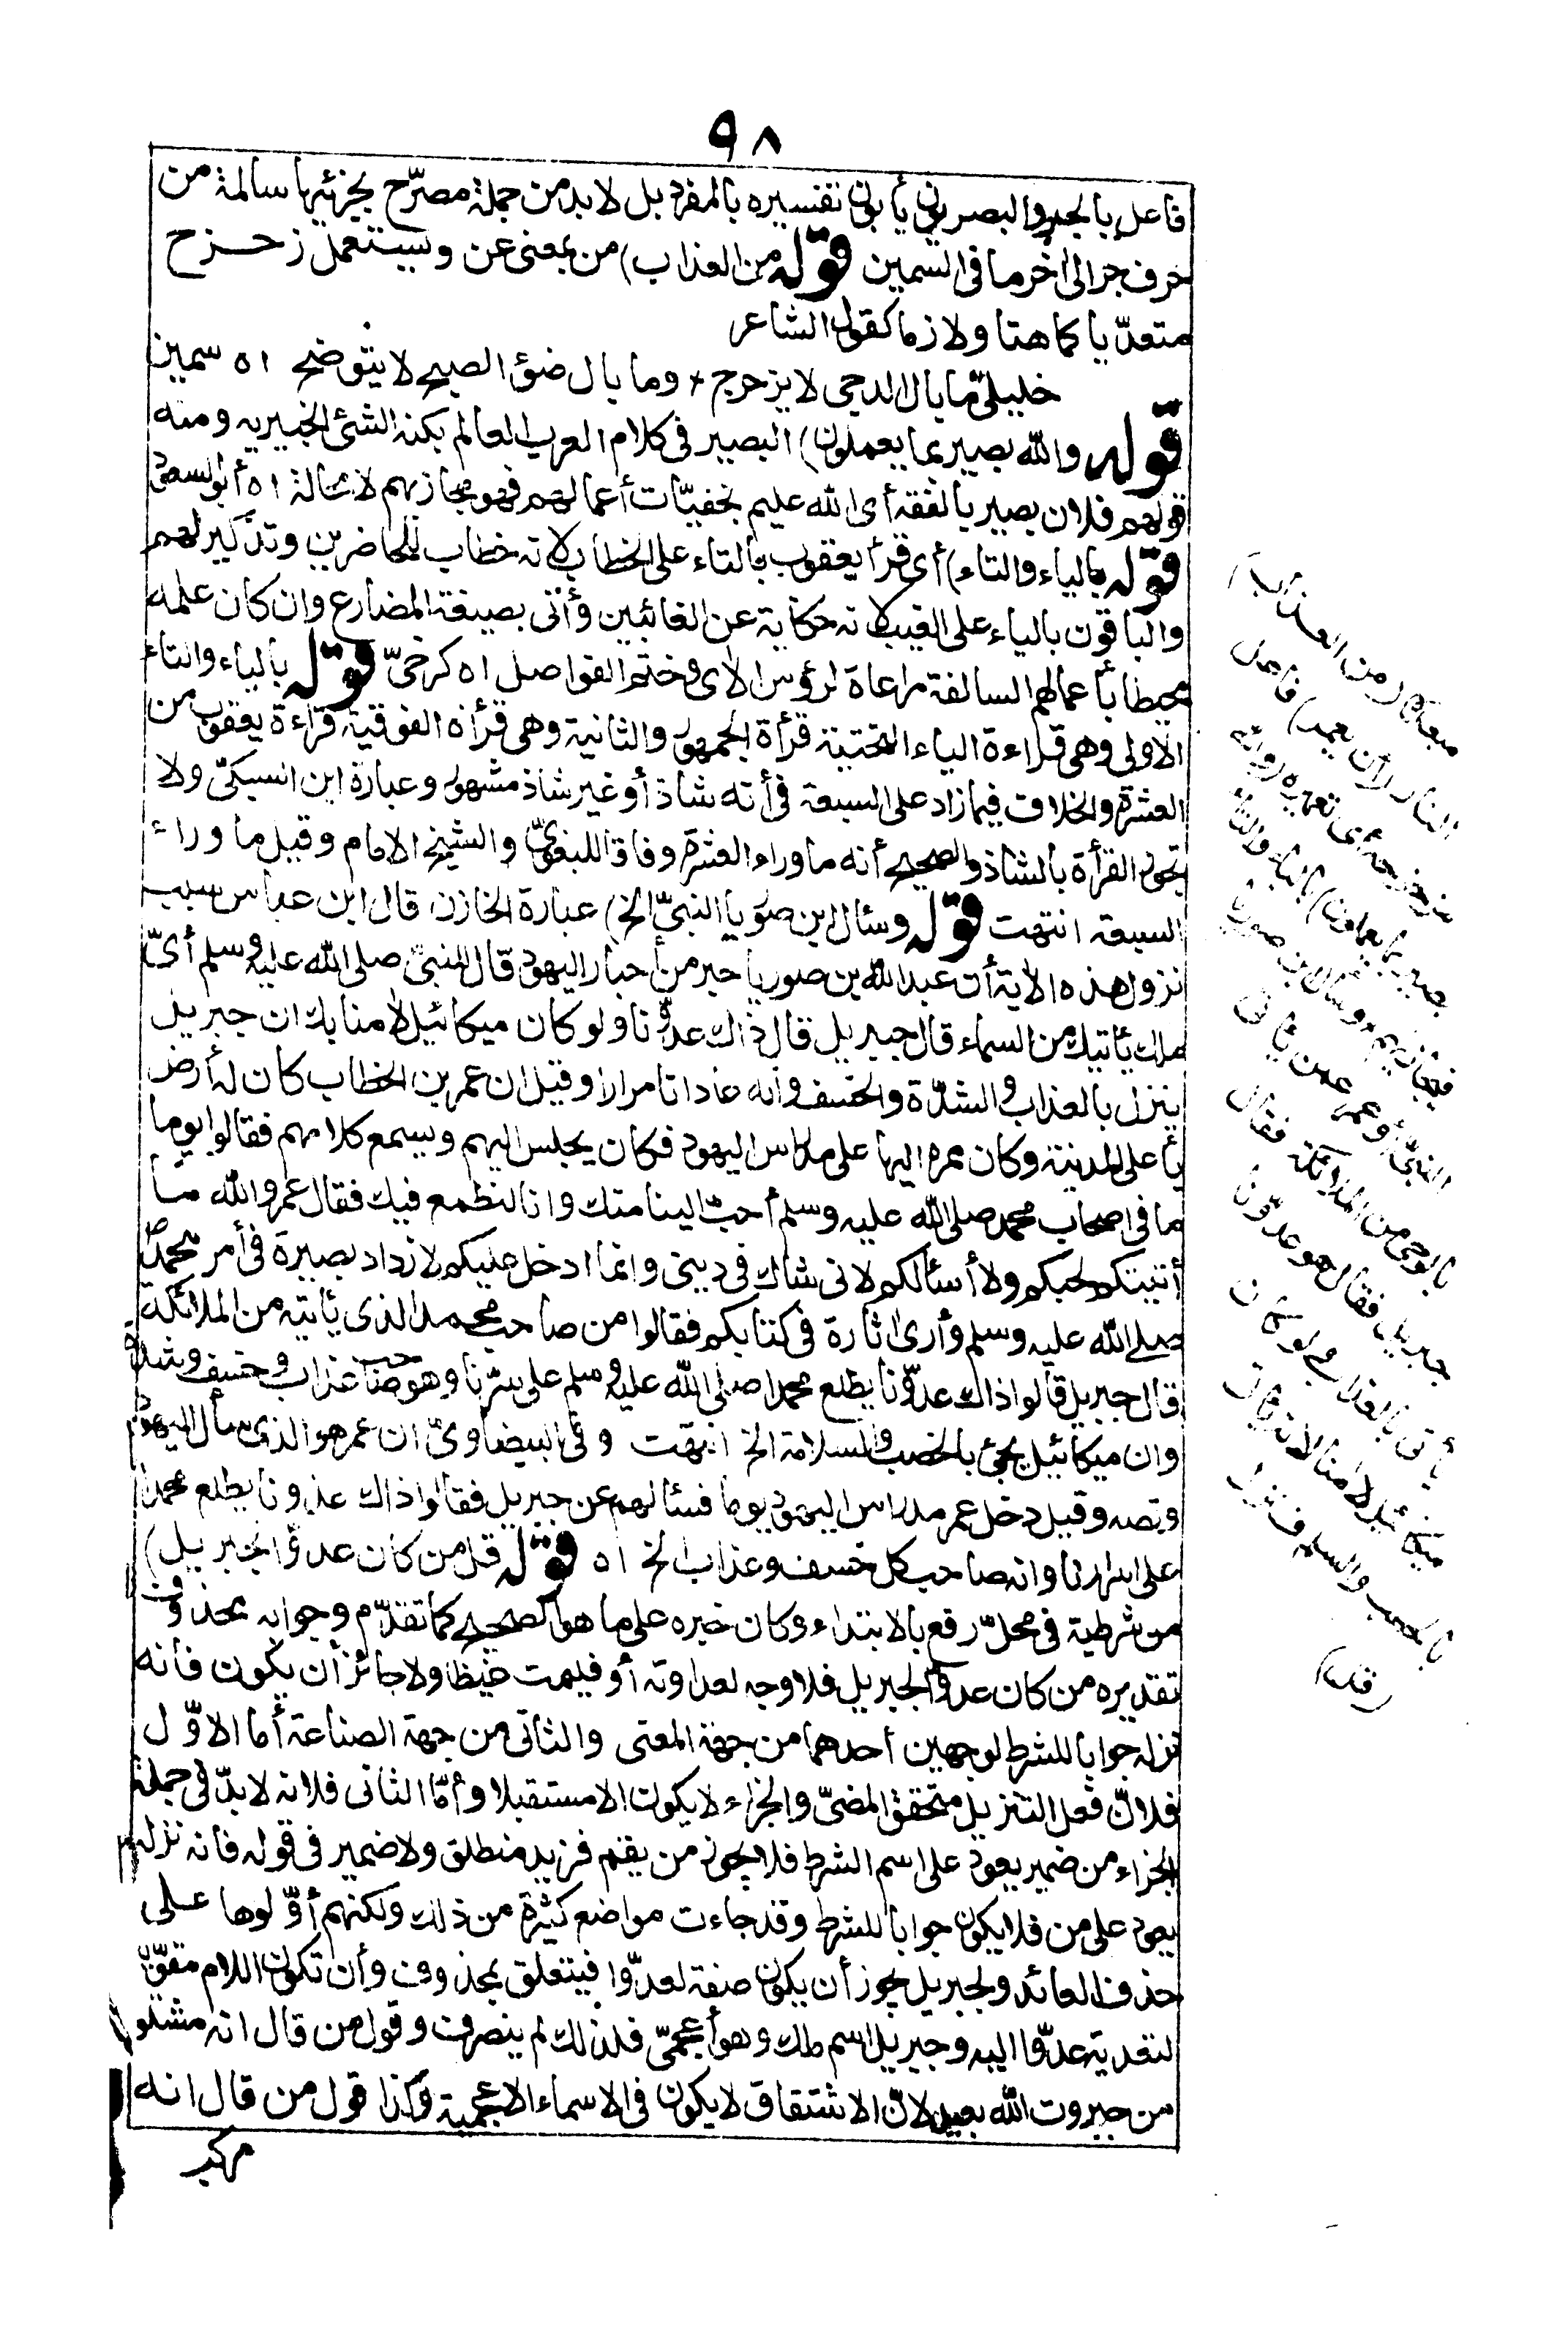 ٩٨
فاعل بالجر والبصريون يأبون تفسيره بالمفرد بل لا بد من جملة مصرّح بجزئيها سالمة من
حرف جر الى اخر ما فى السمين قوله من العذاب) من بمعنى عن ويستعمل زحزح
متعدّيا كما هنا ولازما كقول الشاعر
خليلىّ ما بال الدجى لا يزحزح * وما بال ضؤ الصبح لا يتوضح اه سمين
قوله والله بصير بما يعملون) البصير فى كلام العرب العالم بكنه الشئ الخبير به ومنه
قولهم فلان بصير بالفقه أى الله عليم بخفيّات أعمالهم فهو مجازيهم لا محالة اه أبو السعود
قوله بالياء والتاء) أى قرأ يعقوب بالتاء على الخطاب لانه خطاب للحاضرين وتذكير لهم
والباقون بالياء على الغيب لانه حكاية عن الغائبين وأتى بصيغة المضارع وان كان علمه
محيطا بأعمالهم السالفة مراعاة لرؤس الاى وختم الفواصل اه كرخىّ قوله بالياء والتاء
الاولى وهى قراءة الياء التحتية قرأة الجمهور والثانية وهى قرأة الفوقية قراءة يعقوب من
العشرة والخلاف فيما زاد على السبعة فى أنه شاذ أو غير شاذ مشهور وعبارة ابن السبكىّ ولا
تجوز القرأة بالشاذ والصحيح أنه ما وراء العشرة وفاقا للبغوىّ والشيخ الامام وقيل ما وراء
السبعة انتهت قوله وسأل ابن صوريا النبىّ الخ) عبارة الخازن قال ابن عباس سبب
نزول هذه الاية أن عبد الله بن صوريا حبر من أحبار اليهود قال للنبىّ صلى الله عليه وسلم أىّ
ملك يأتيك من السماء قال جبريل قال ذاك عدوّنا ولو كان ميكائيل لامنا بك ان جبريل
ينزل بالعذاب والشدّة والخسف وانه عادانا مرارا وقيل ان عمر بن الخطاب كان له أرض
بأعلى المدينة وكان ممره اليها على مدراس اليهود فكان يجلس اليهم ويسمع كلامهم فقالوا يوما
ما فى اصحاب محمد صلى الله عليه وسلم أحبّ الينا منك وانا لنطمع فيك فقال عمر والله ما
أتيتكم لحبكم ولا أسئالكم لانى شاك فى دينى وانما ادخل عليكم لازداد بصيرة فى أمر محمد
صلى الله عليه وسلم وأرى اثارة فى كتابكم فقالوا من صاحب محمد الذى يأتيه من الملائكة
قال جبريل قالوا ذاك عدوّنا يطلع محمدا صلى الله عليه وسلم على سرّنا وهو صاحب عذاب وخسف وشدة
وان ميكائيل يجئ بالخصب والسلامة الخ انتهت وفى البيضاوىّ ان عمر هو الذى سأل اليهود
ونصه وقيل دخل عمر مدراس اليهود يوما فسئالهم عن جبريل فقالوا ذاك عدونا يطلع محمدا
على اسرارنا وانه صاحب كل خسف وعذاب الخ اه قوله قل من كان عدوّا لجبريل)
من شرطية فى محلّ رفع بالابتداء وكان خبره على ما هو الصحيح كما تقدّم وجوابه محذوف
تقديره من كان عدوّا لجبريل فلا وجه لعداوته أو فليمت غيظا ولا جائز أن يكون فانه
نزله جوابا للشرط لوجهين أحدهما من جهة المعنى والثانى من جهة الصناعة أما الاوّل
فلانّ فعل التنزيل متحقق المضىّ والجزاء لا يكون الا مستقبلا وأمّا الثانى فلانه لا بدّ فى جملة
الجزاء من ضمير يعود على اسم الشرط فلا يجوز من يقم فزيد منطلق ولا ضمير فى قوله فانه نزله
يعود على من فلا يكون جوابا للشرط وقد جاءت مواضع كثيرة من ذلك ولكنهم أوّلوها على
حذف العائد ولجبريل يجوز أن يكون صفة لعدوّا فيتعلق بمحذوف وأن تكون اللام مقوّية
لتعدية عدوّا اليه وجبريل اسم ملك وهو أعجمىّ فلذلك لم ينصرف وقول من قال انه مشتق
من جبروت الله بعيد لانّ الاشتقاق لا يكون فى الاسماء الاعجمية وكذا قول من قال انه
مركب
مبعده (من العذاب)
النار (أن يعمر) فاعل
مزحزحه أى تعميره (والله
بصير بما يعملون) بالياء والتاء
فيجازيهم وسأل ابن صوريا
النبىّ أو عمر عمن يأتى
بالوحى من الملائكة فقال
جبريل فقال هو عدوّنا
يأتى بالعذاب ولو كان
ميكائيل لامنا لانه يأتى
بالخصب والسلم فنزل
(قل)